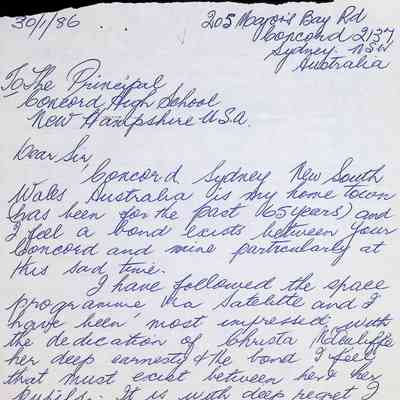 30/1/86
205 Majors Bay Rd
Concord 2137
Sydney. N.S.W.
Australia
To The Principal
Concord High School
New Hampshire U.S.A.
Dear Sir,
Concord Sydney New South
Wales Australia is my home town
(has been for the past 65 years) and
I feel a bond exists between your
Concord and mine particularly at
this sad time.
I have followed the space
programme via Satelite and I
have been most impressed with
the dedication of Christa McAuliffe
her deep earnesty & the bond I feel
that must exist between her & her
Pupils. It is with deep regret I